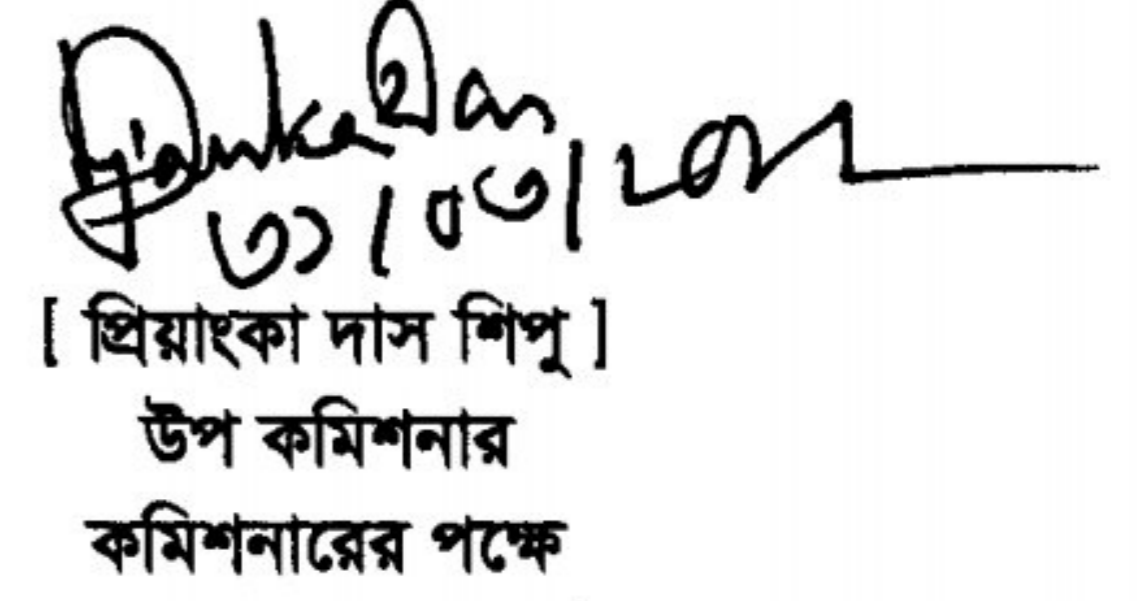 ৩১/০৩/
[ প্রিয়াংকা দাস শিপু ]
উপ কমিশনার
কমিশনারের পক্ষে